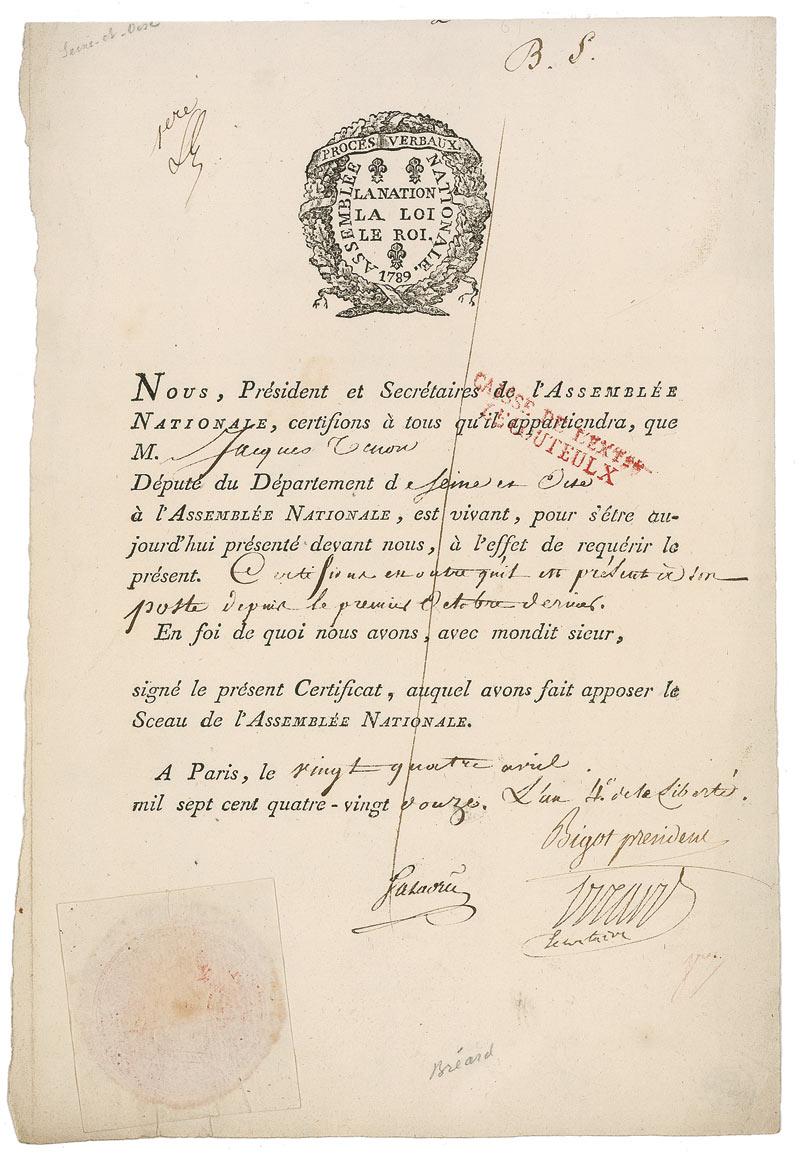 Seine-et-Oise
B. S.
PROCÈS VERBAUX.
ASSEMBLÉE NATIONALE.
LA NATION
LA LOI
LE ROI.
1789
CAISSE DE L'EXTRE
LECOUTEULX
Nous, Président et Secrétaires de l'Assemblée
Nationale, certifions à tous qu'il appartiendra, que
M. Jacques Tenon
Député du Département de Seine et Oise
à l'Assemblée Nationale, est vivant, pour s'être au-
jourd'hui présenté devant nous, à l'effet de requérir le
présent. Certifions en outre qu'il est présent à son
poste depuis le premier Octobre dernier.
En foi de quoi nous avons, avec mondit sieur,
signé le présent Certificat, auquel avons fait apposer le
Sceau de l'Assemblée Nationale.
A Paris, le vingt quatre avril
mil sept cent quatre-vingt douze. L'an 4.e de la Liberté.
Bigot president
secretaire
Bréard